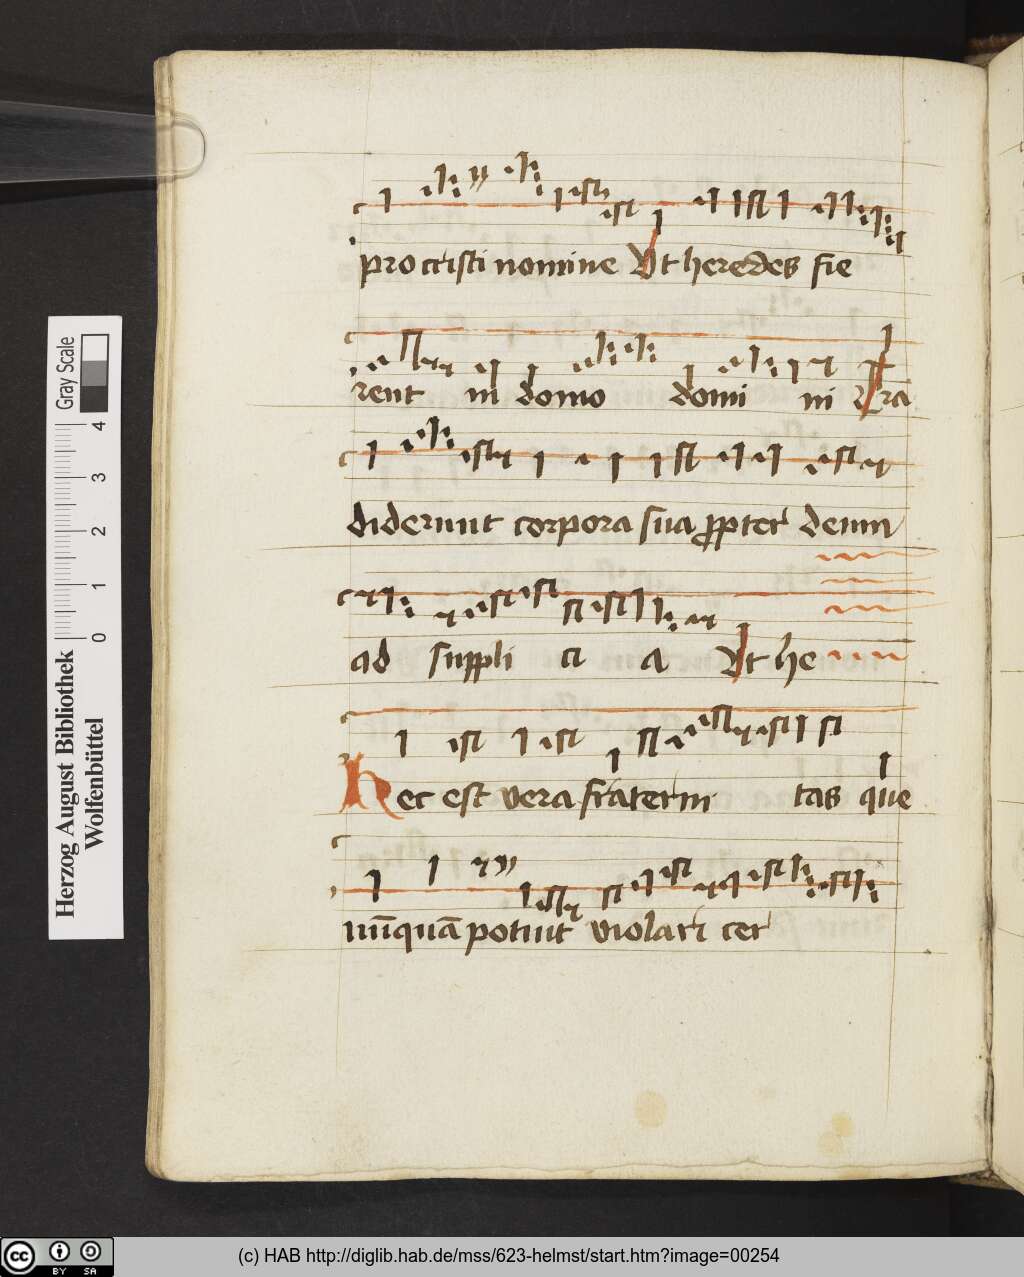 pro cristi nomine Vt heredes fie
rent in domo domi ni Tra
diderunt corpora sua propter deum
ad suppli ci a Vt he
Hec est vera fraterni tas que
nu̅qua̅ potuit violari cer
Herzog August Bibliothek
Wolfenbüttel
Gray Scale
0 1 2 3 4
cc BY SA
(c) HAB http://diglib.hab.de/mss/623-helmst/start.htm?image=00254